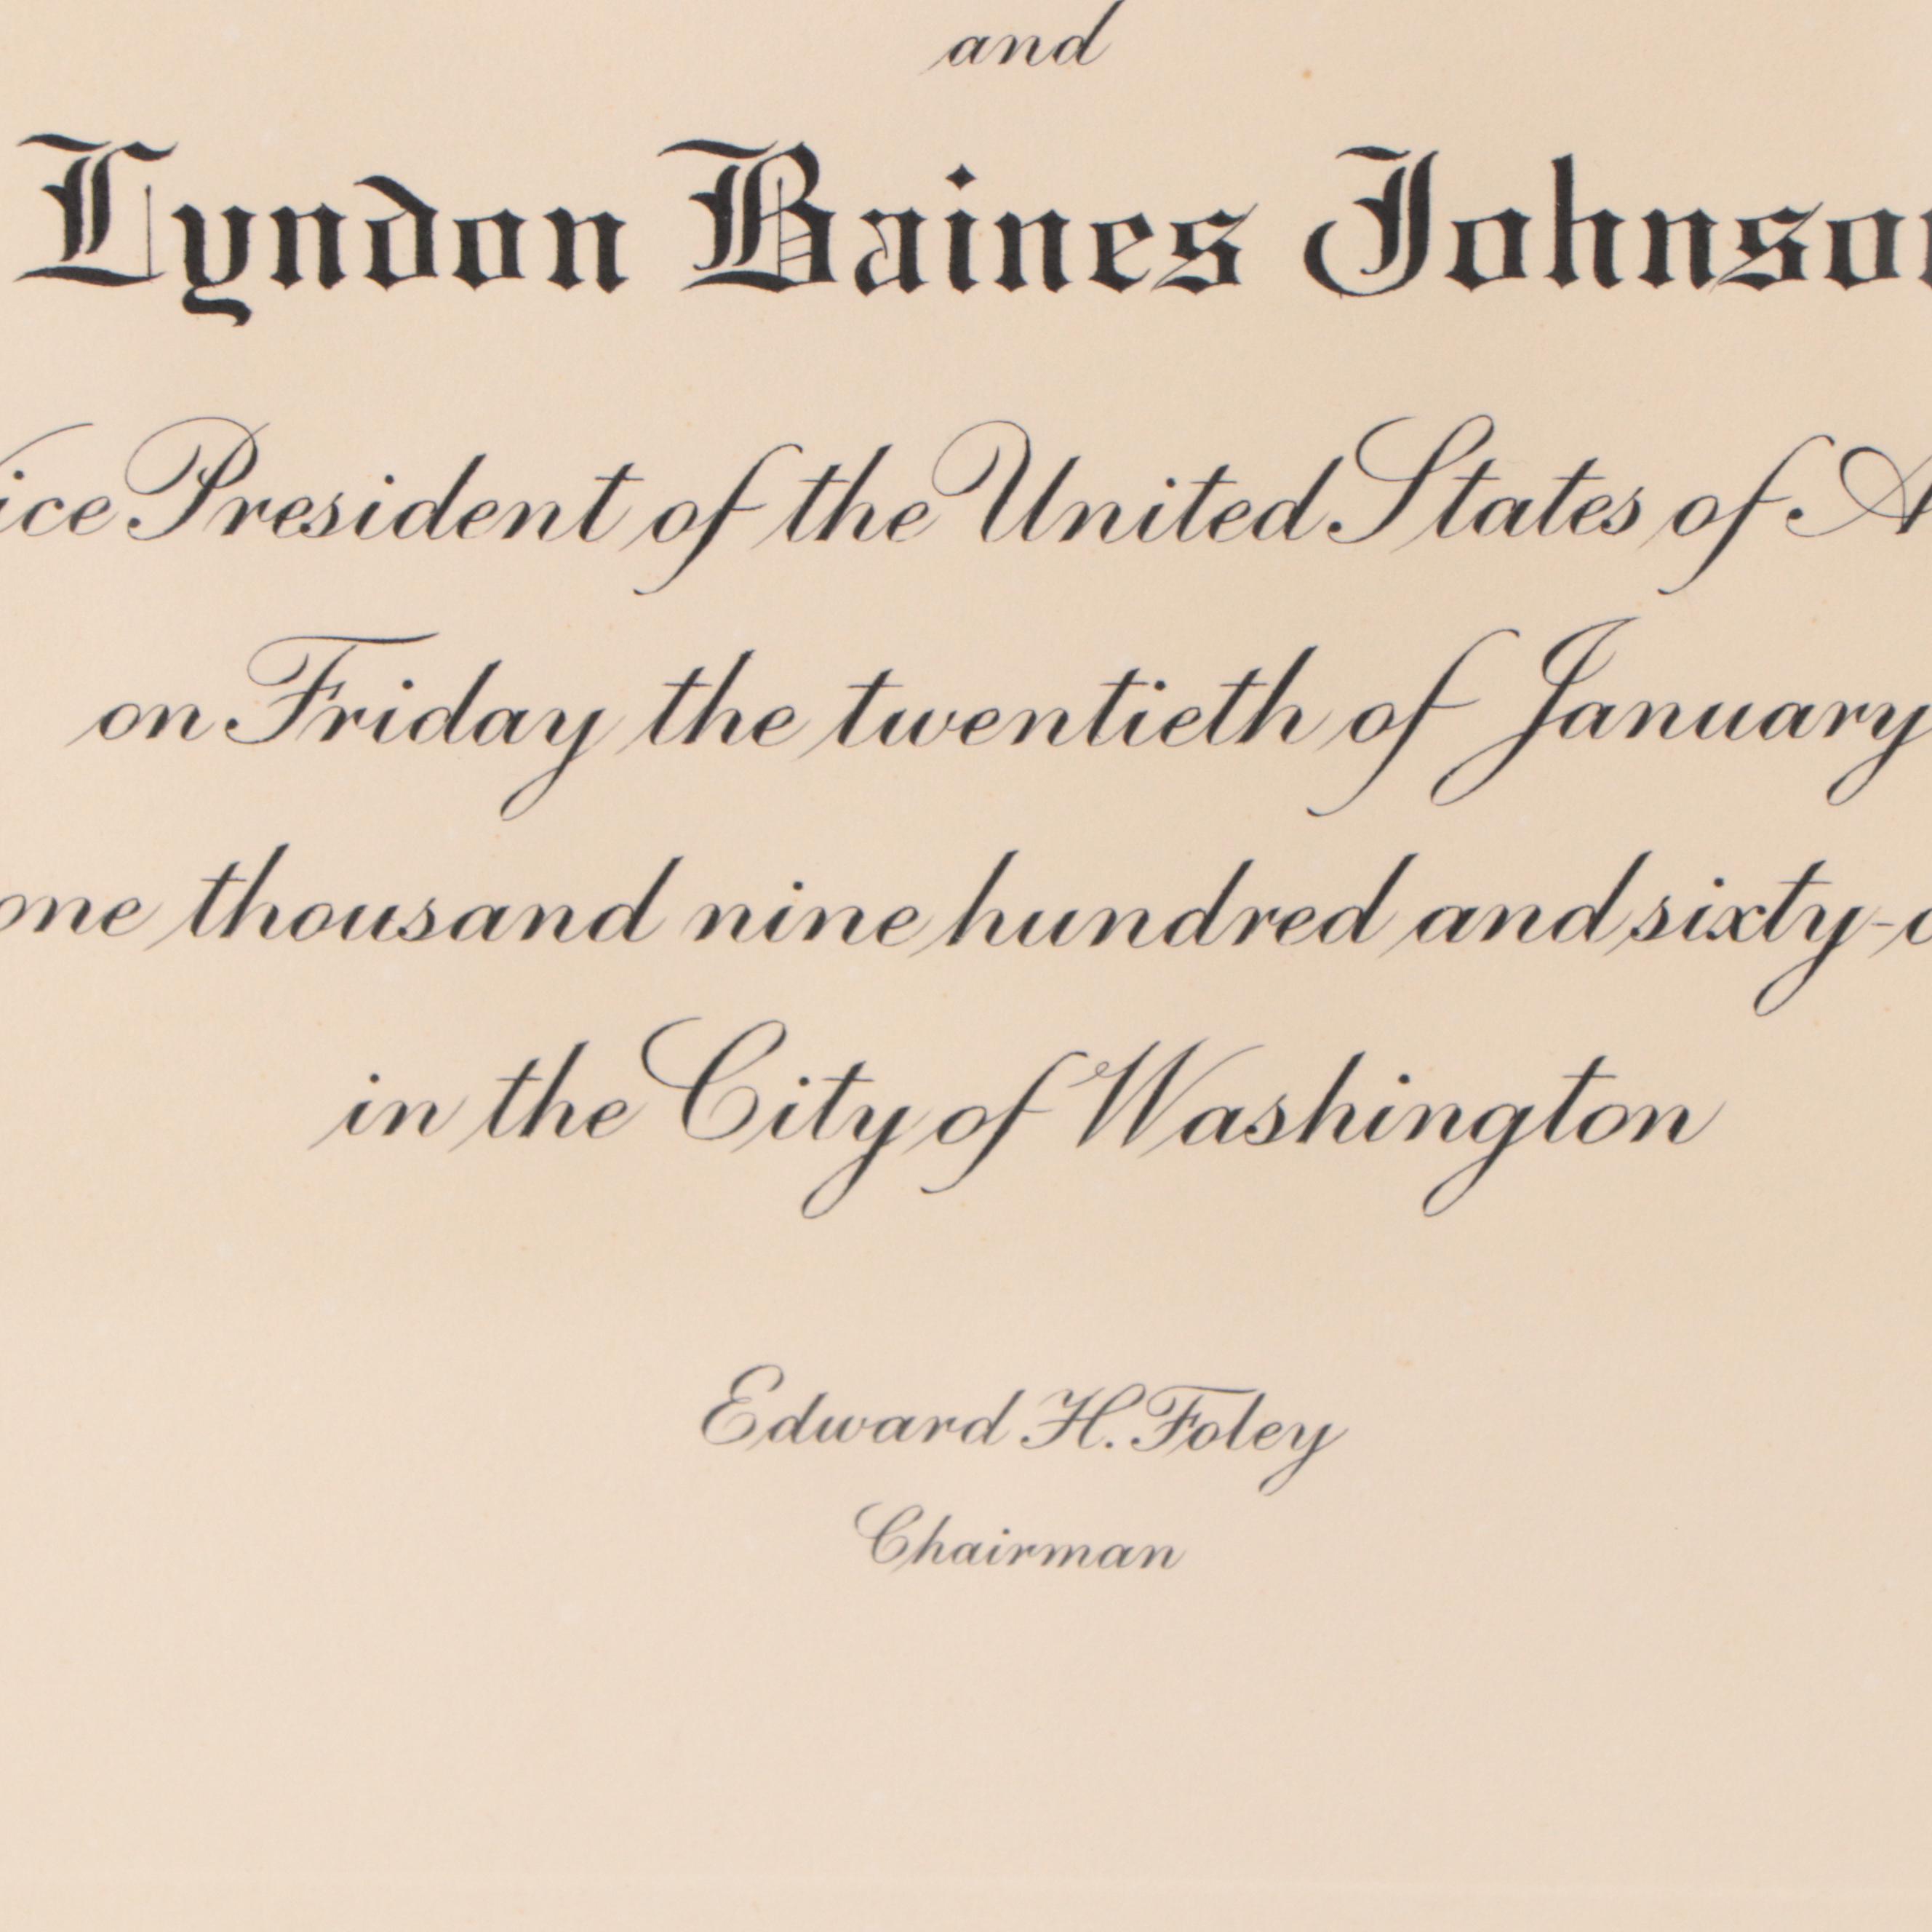 and
Lyndon Baines Johnson
ice President of the United States of A
on Friday the twentieth of January
one thousand nine hundred and sixty-o
in the City of Washington
Edward H. Foley
Chairman